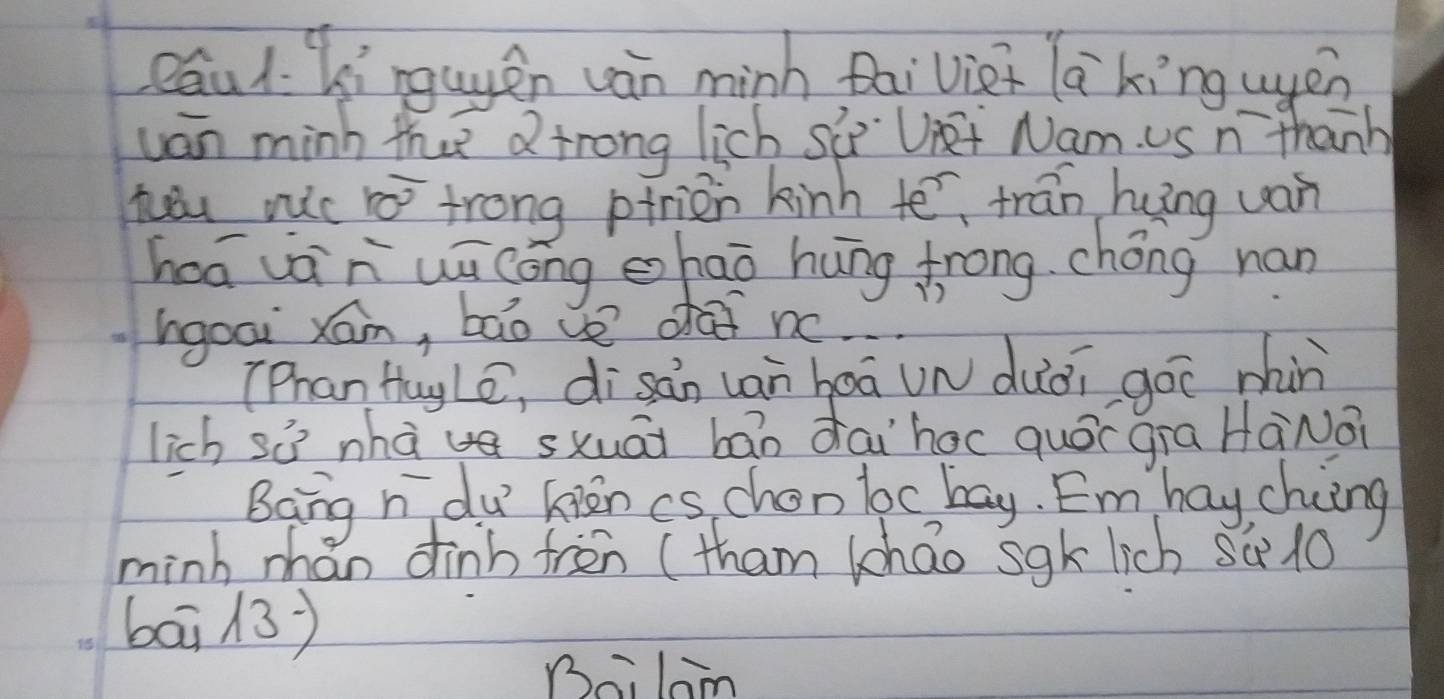 Câu 1: "Kỉ nguyên văn minh Đại Việt là kỉ nguyên
văn minh thứ 2 trong lịch sử Việt Nam. vs n~ thành
tựu rực rỡ trong ptriển kinh tế, trấn hưng văn
hoá và n~ vũ công hào hùng trong chống nạn
ngoại xâm, bảo vệ đất nc..."
(Phan Huy Lê, di sản văn hoá VN dưới góc nhìn
lịch sử nhà sxuất bản đại học quốc gia Hà Nội
Bằng n~ dữ kiện cs chọn lọc hãy. Em hãy chứng
minh nhận định trên (tham khảo sgk lịch sử 10
bài 13)
Bài làm